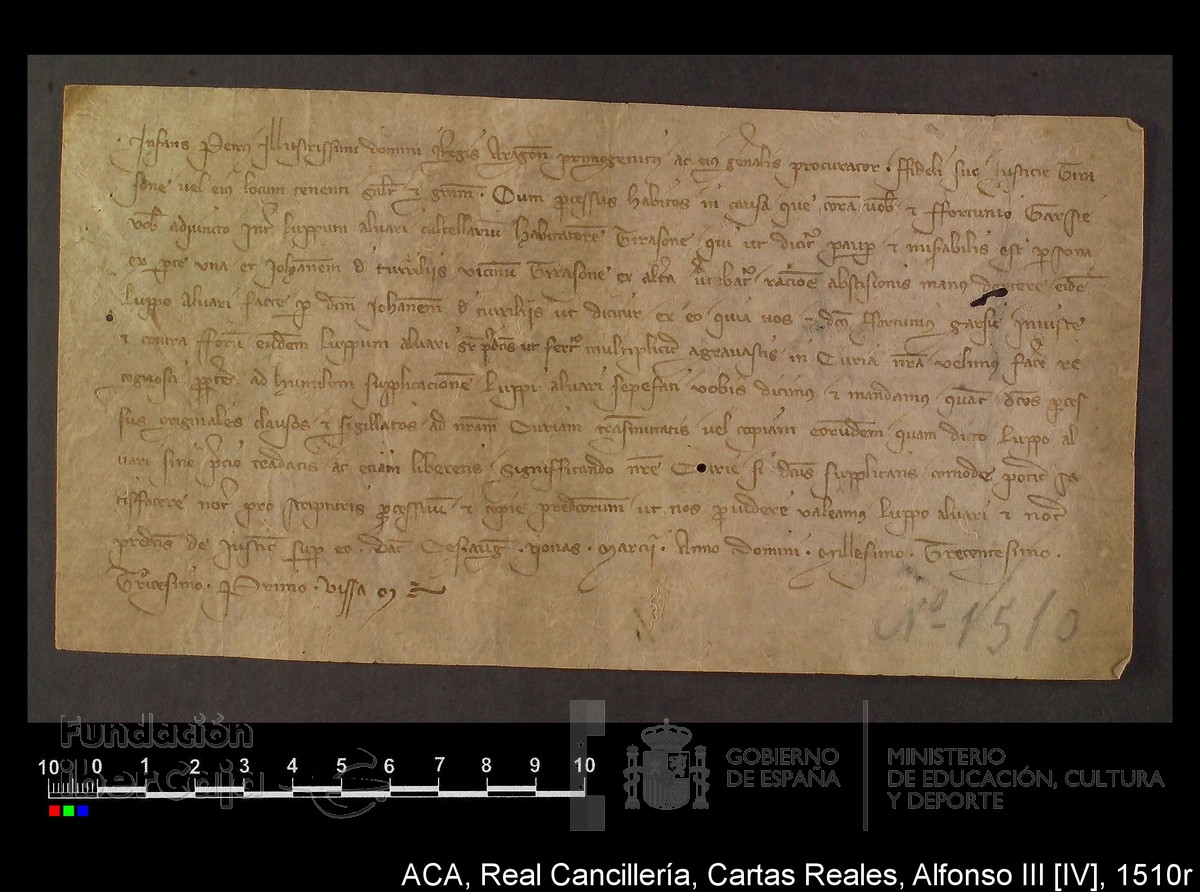 Infans Petrus Illustrissimi domini Regis Aragon primogenitus ac eius gen̄alis procurator. ffideli suo Justicie Tira
sone vel eius locum tenenti Salt̄ ⁊ gram̄. Cum processus habitos in causa que corā vob̄ ⁊ ffortunio Garsie
vob̄ adjuncto Int̄ Luppum alvari cultellariū habitatorē Tirasone qui ut dicit̄ paup̄ ⁊ mis̄abilis est persona
ex p̄te una et Johanem̄ d turrilijs vicinū Tirasone ex alt̄a racioē abscisionis manus eidē
Luppo alvari facte p̄ dcm̄ Johanem̄ d turrilijs ut dicitur ex eo quia vos ⁊ dcs̄ ffortunius garsie Iniuste
⁊ contra fforū eundem̄ Luppum alvari sr̄ p̄dcis̄ ut fert̄ multiplicit̄ agravastis in Curia nr̄a velimus fac̄e re
cognosci ad humilem supplicacionē Luppi alvari sepefati vobis dicimus ⁊ mandamus quat̄ dcōs p̄ces
sus originales clausos ⁊ sigillatos ad nr̄am Curiam trasmitatis vel copiam eorūdem quam dicto Luppo al
vari sine p̄cio tradatis ac etiam liberetis significando nr̄e Curie si dcūs supplicans comode pot̄it sa
tisffacere not̄ pro scripturis p̄cessuū ⁊ copie predcōrum ut nos p̄videre valeamus Luppo alvari ⁊ not̄
predcīs de Justic̄ sup̄ eo. Dat̄ Cesarauḡ. nonas. Marcij. Anno Domini. Millesimo. Trecentesimo.
Tricesimo. Primo. vissa
Nº 1510
Fundación
iberCaja
10 0 1 2 3 4 5 6 7 8 9 10
GOBIERNO
DE ESPAÑA
MINISTERIO
DE EDUCACIÓN, CULTURA
Y DEPORTE
ACA, Real Cancillería, Cartas Reales, Alfonso III [IV], 1510r